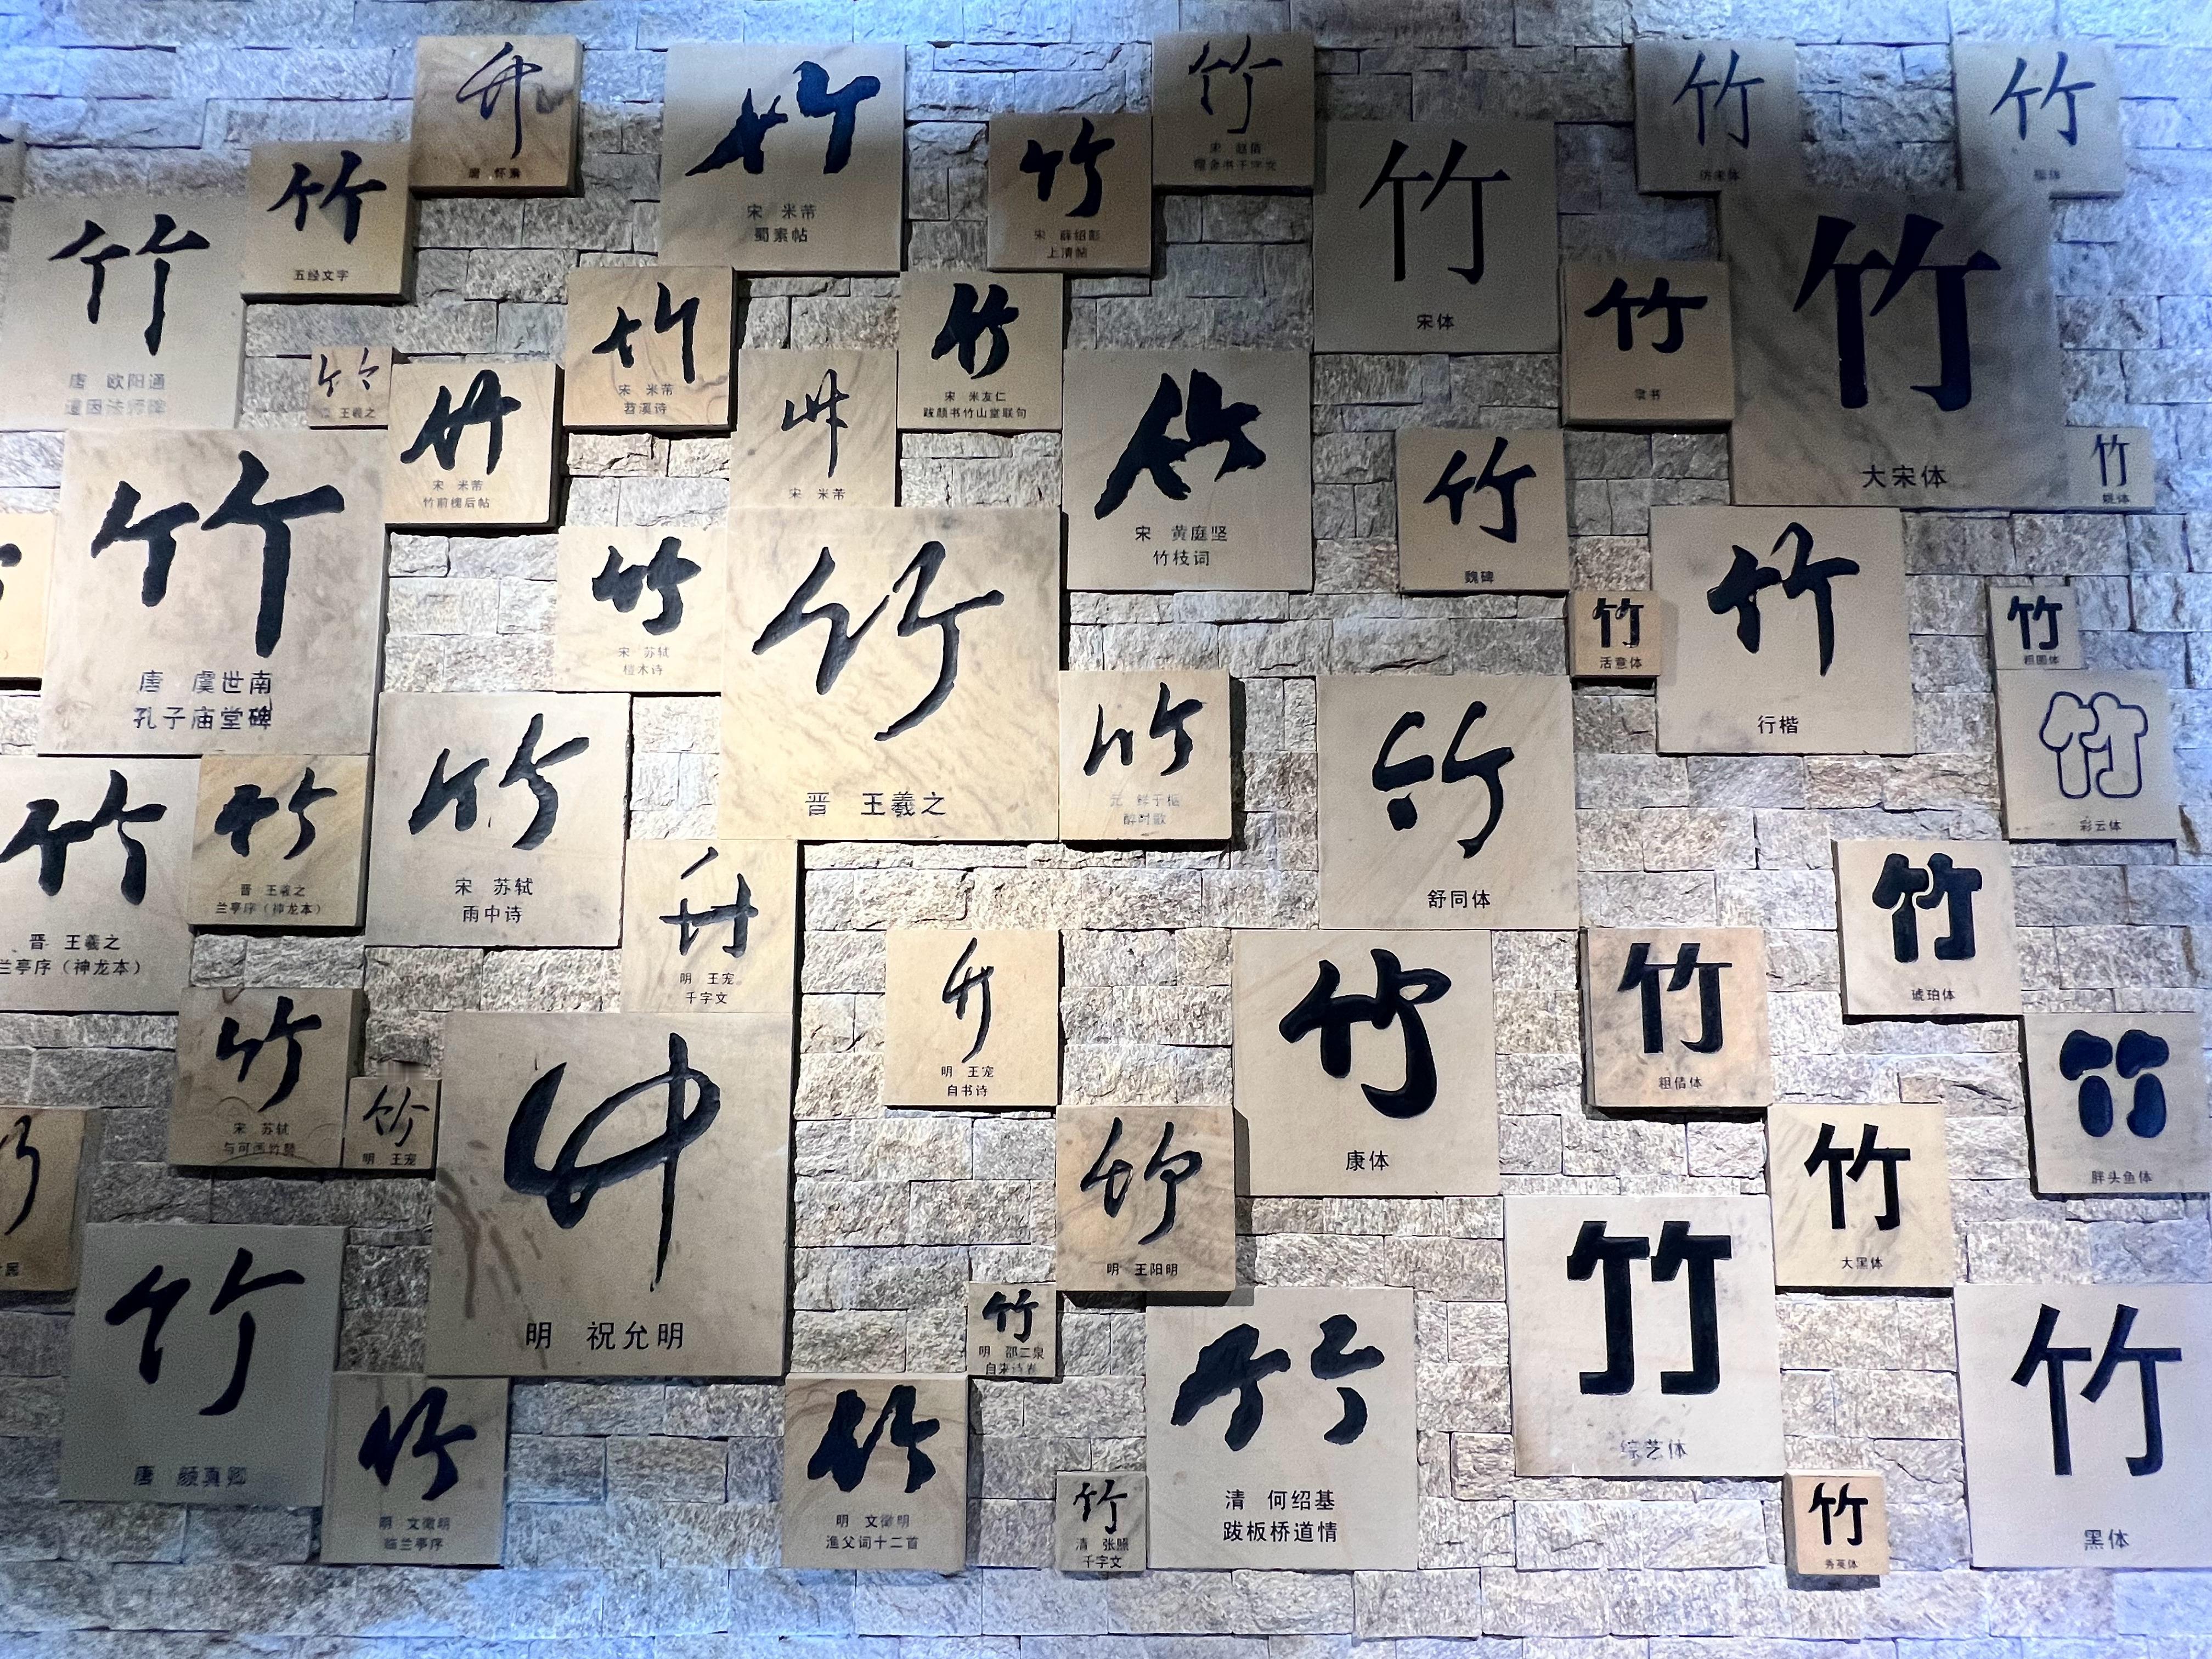 竹
唐 怀素
竹
宋 米芾
蜀素帖
竹
宋
竹
宋 薛绍彭
上清帖
竹
竹
竹
五经文字
竹
宋体
竹
唐 欧阳通
道因法师碑
竹
大宋体
竹
宋 米芾
苕溪诗
竹
宋 米友仁
跋颜书竹山堂联句
竹
竹
王羲之
竹
宋 米芾
竹前槐后帖
竹
宋 米芾
竹
宋 黄庭坚
竹枝词
竹
魏碑
竹
竹
唐 虞世南
孔子庙堂碑
竹
宋 苏轼
桤木诗
竹
晋 王羲之
竹
活意体
竹
行楷
竹
粗圆体
竹
宋 苏轼
雨中诗
竹
元 鲜于枢
醉时歌
竹
舒同体
竹
彩云体
竹
晋 王羲之
兰亭序（神龙本）
竹
晋 王羲之
兰亭序（神龙本）
竹
明 王宠
千字文
竹
琥珀体
竹
明 王宠
自书诗
竹
康体
竹
粗倩体
竹
宋 苏轼
竹
明 王宠
竹
明 祝允明
竹
胖头鱼体
竹
明 王阳明
竹
大黑体
竹
唐 颜真卿
竹
明 邵二泉
竹
综艺体
竹
黑体
竹
明 文徵明
临兰亭序
竹
明 文徵明
渔父词十二首
竹
清 张照
千字文
竹
清 何绍基
跋板桥道情
竹
秀英体